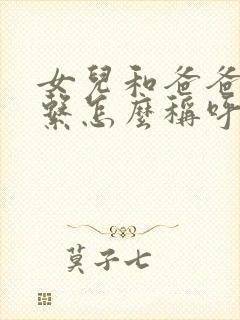 女兒和爸爸
繫怎麼稱呼
莫子七